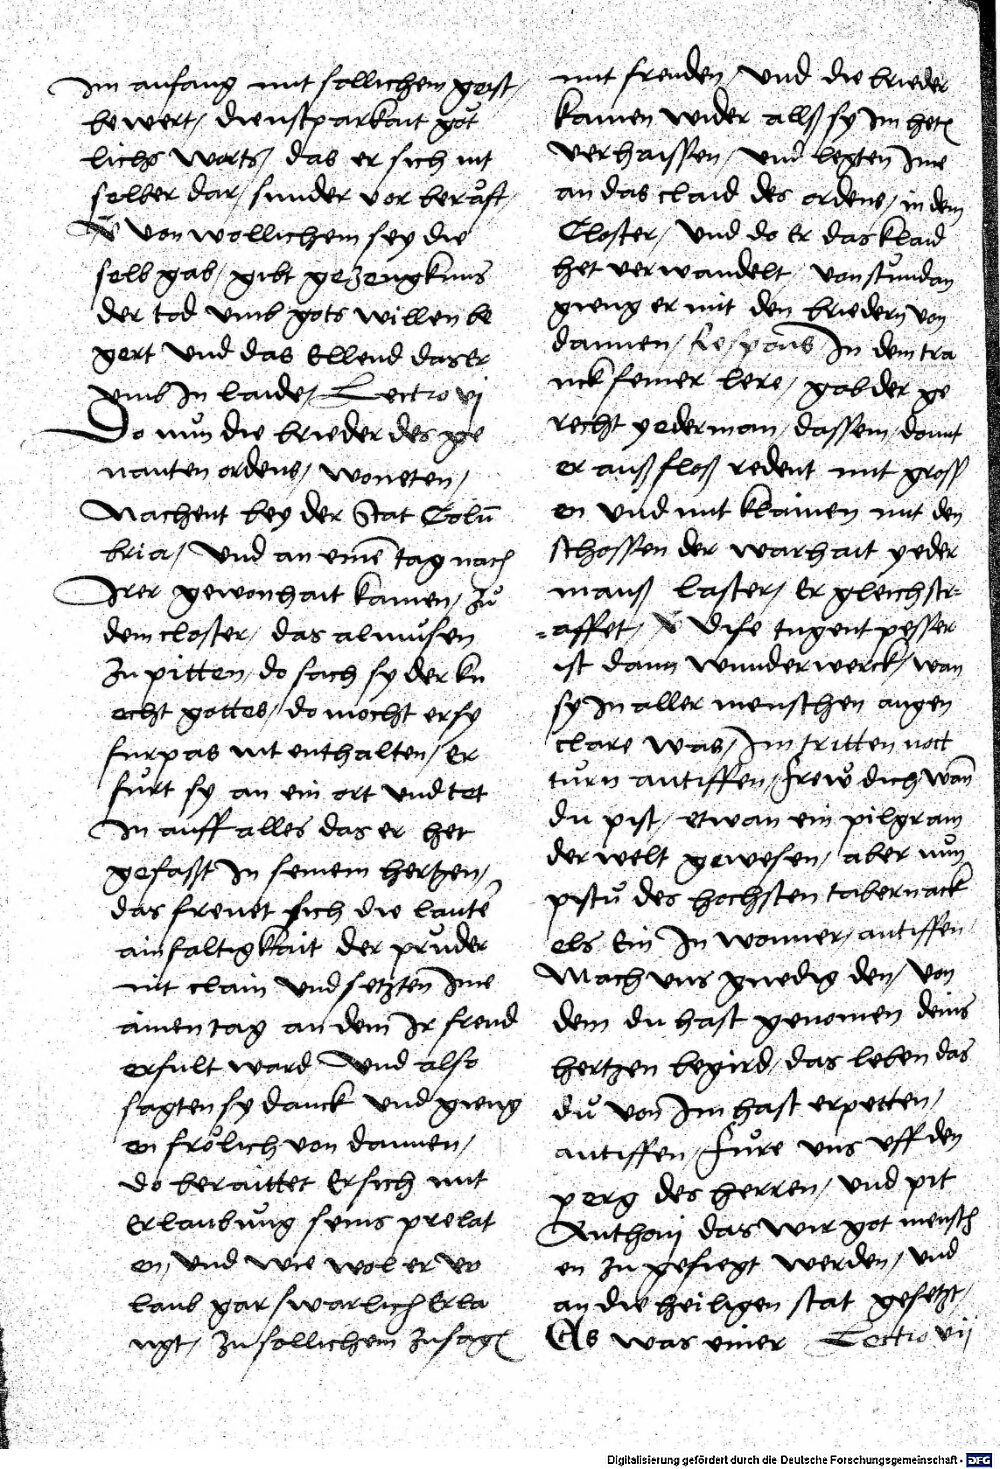 Im anfang mit sollichem geist,
bewert, dienstparkait göt
lichs worts, das er sich nit
selber dar, sunder vor berůft,
V̈ von wöllichem sey die
selb gab, gibt gezeugknus
der tod vmb gots willen be
gert vnd das Ellend das Er
vmb In laide, Lectio vj
Do nůn die brieder des ge
nanten ordens, woneten,
Nachent bey der Stat Colū
bria, vnd an einē tag nach
Irer gewonhait kamen, zů
dem closter, das almůsen
zu pitten, do sach sy der kn
echt gottes, do mocht er sy
furpas nit enthalten, er
fůrt sy an ein ort vnd tet
In auff alles das er het
gefasst In seinem hertzen,
das freuet sich die lautē
ainfaltigkait der průder
nit clain vnd setzten Ime
ainen tag an dem Ir freud
erfult ward Vnd also
sagten sy danck vnd gieng
en frölich von dannen,
do beraittet Er sich mit
Erlaubůng seins prelat
en, vnd wie wol er vr
laub gar swarlich Erla
ngt, zu sollichem zusagen
mit freuden, vnd die brieder
kamen wider allß sy Im heten
verhaissen, vnd legten Ime
an das claid des ordens, in dem
Closter, vnd do Er das klaid
het verwandelt, von stůndan
gieng er mit den briedern von
dannen, Respons In dem tra
nck seiner lere, gab der ge
recht yederman, dassem, damit
er auß floß redent mit gross
en vnd mit klainen mit den
schossen der warhait yeder
mans laster, Er gleich str=
=affet, V̈ dise tugent pesser
ist dann wunderwerck, wan
sy In aller menschen augen
clare was, Im tritten noct
turn antiffen, frew dich wan
du pist, etwan ein pilgram
der welt gewesen, aber nun
pistu des hochsten tabernack
els Ein In wonner, antiffen
Mach vns gnedig den, von
dem du hast genomen deins
hertzen begird, das leben das
dů von Im hast erpetten,
antiffen, fůre vns vff den
perg des herren, vnd pit
Anthoni das wir got mensch
en zu gefiegt werden, vnd
an die heiligen stat gesetzt,
Es was einer Lectio vij
Digitalisierung gefördert durch die Deutsche Forschungsgemeinschaft - DFG